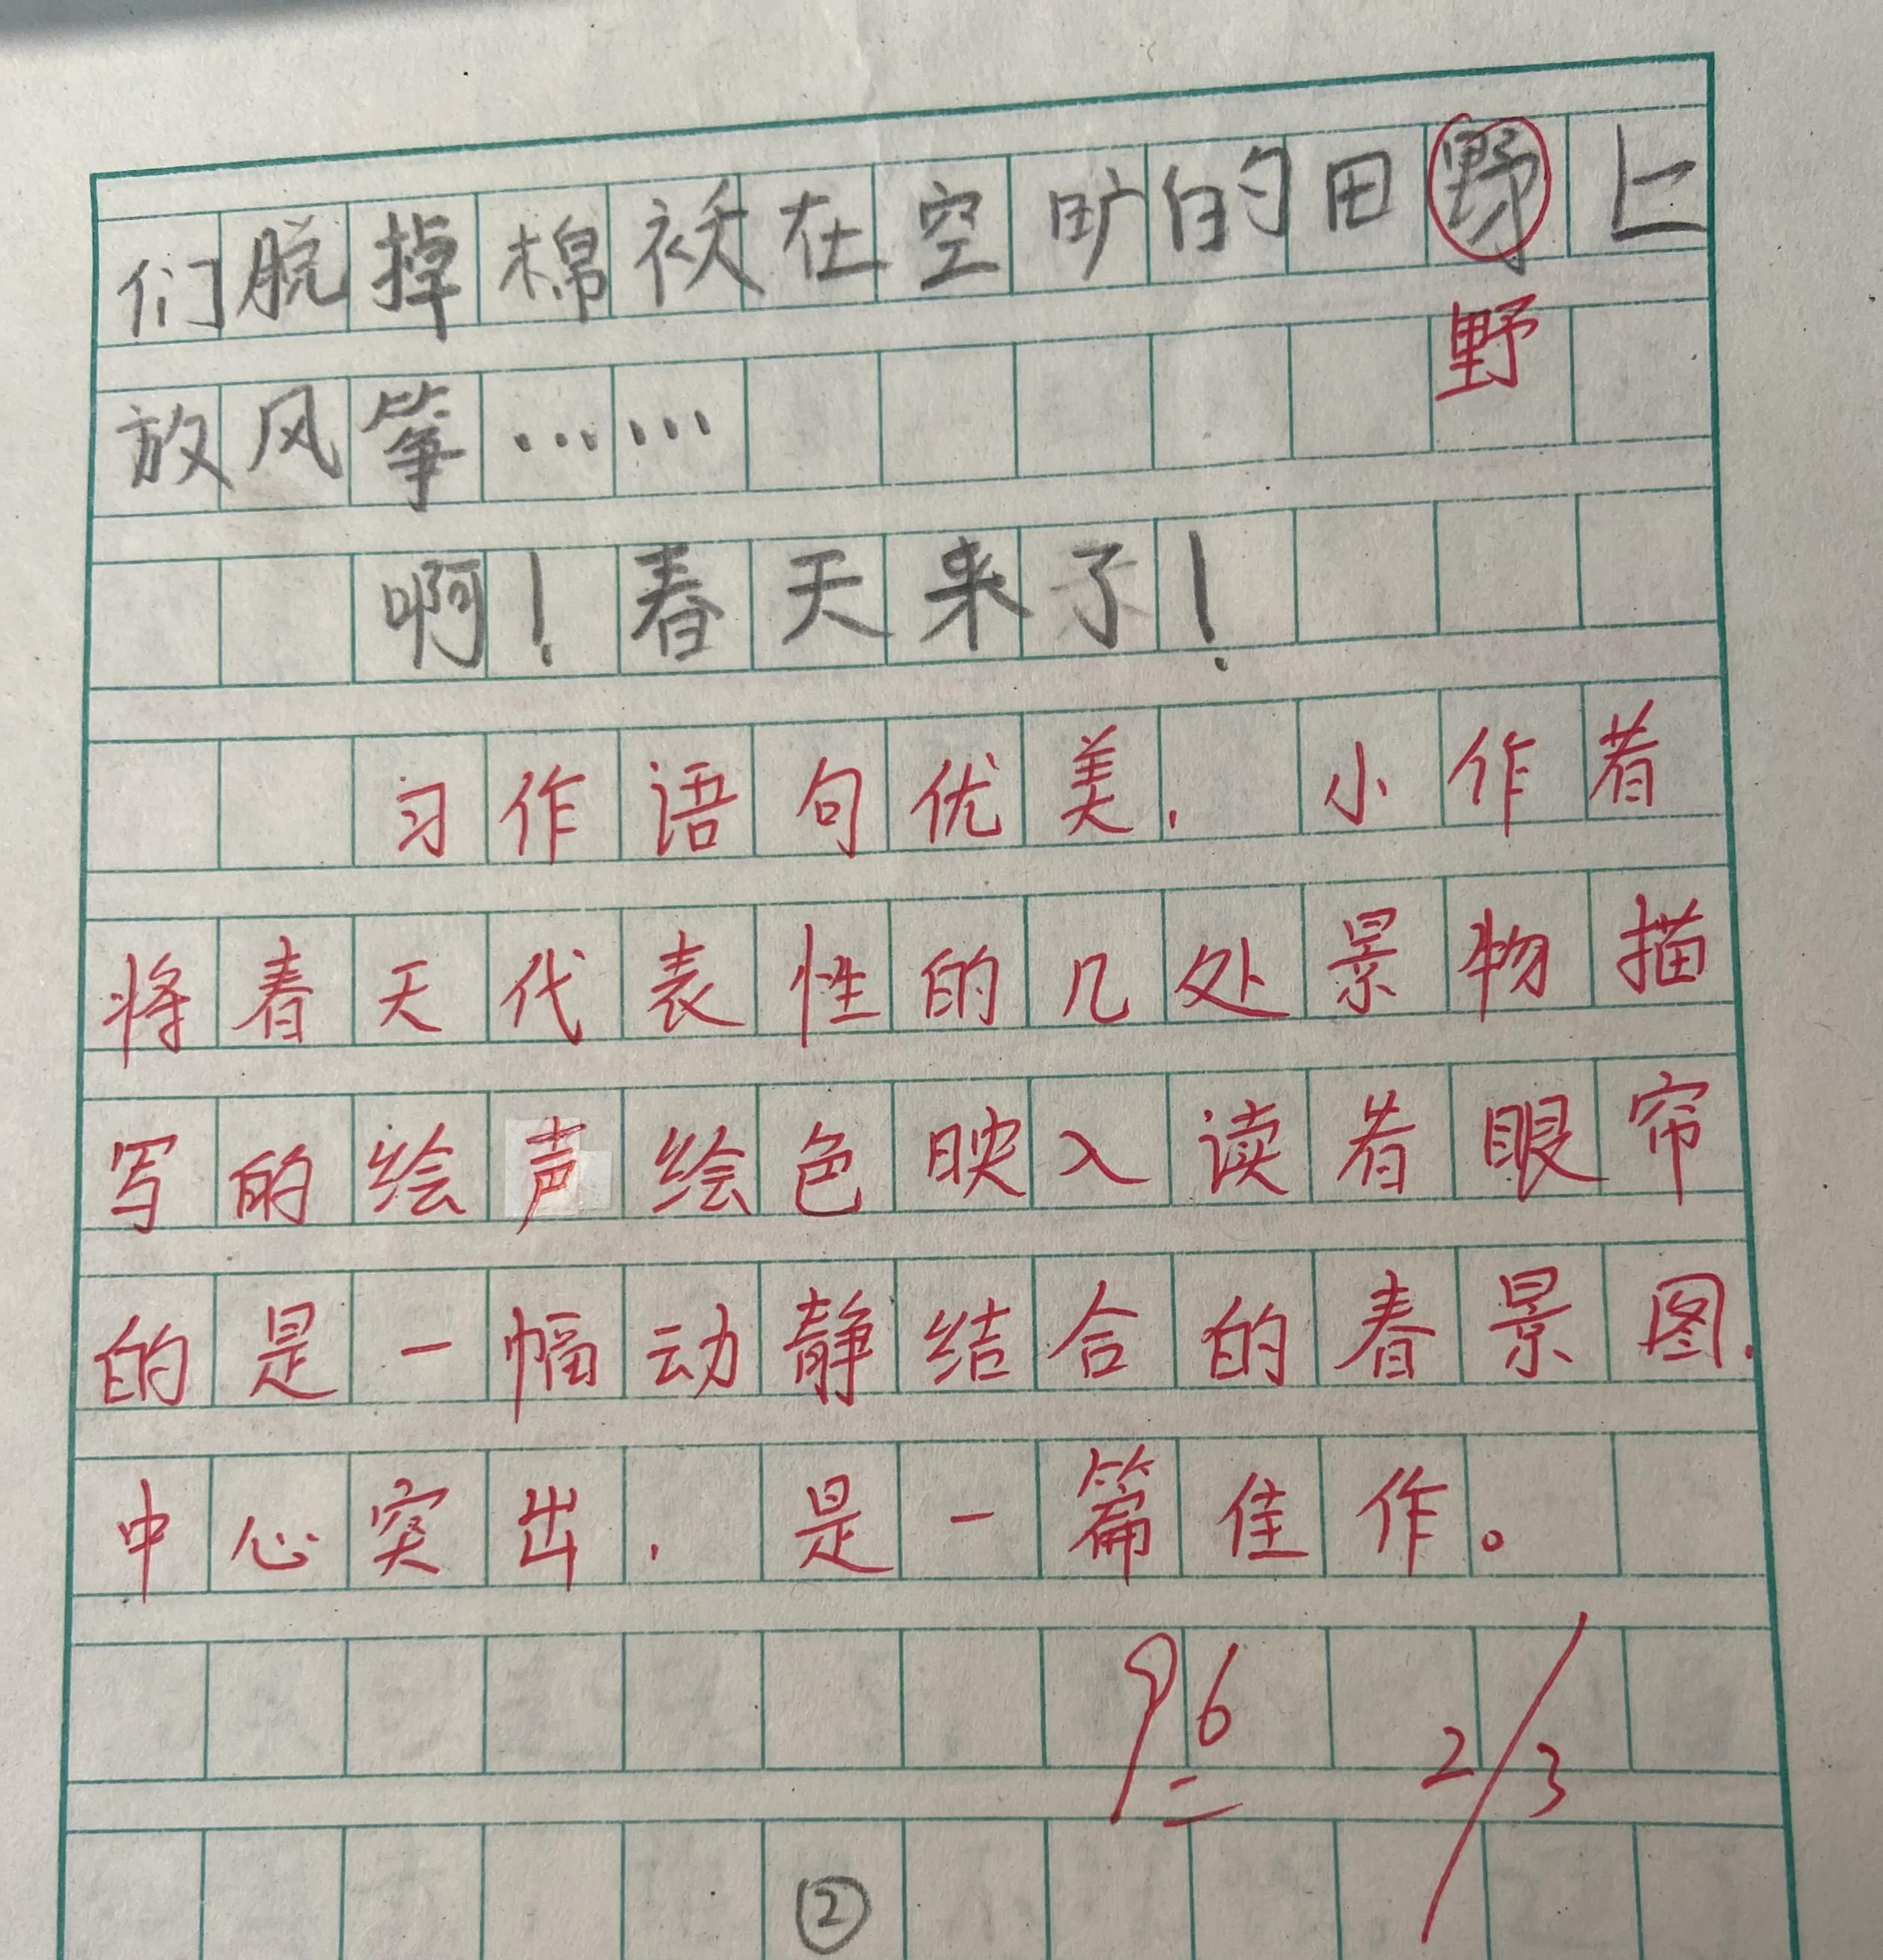 们脱掉棉袄在空旷的田野上
野
放风筝……
啊！春天来了！
习作语句优美，小作者
将春天代表性的几处景物描
写的绘声绘色映入读者眼帘
的是一幅动静结合的春景图，
中心突出，是一篇佳作。
96
2/3
②